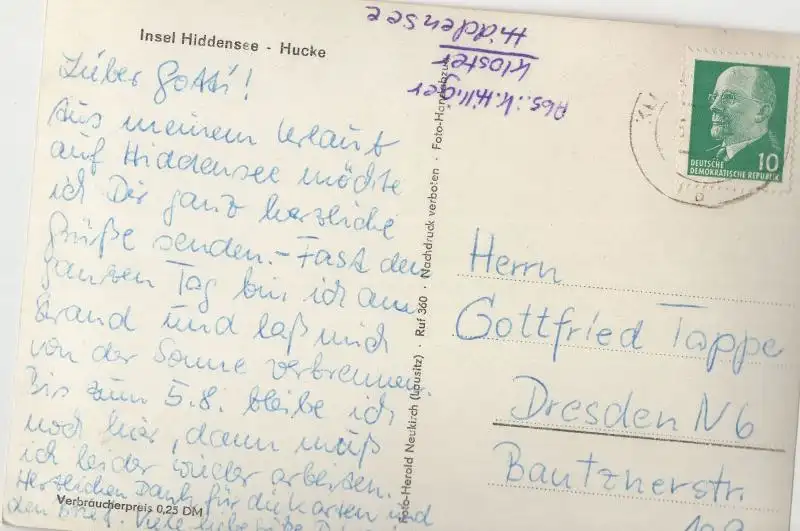 Insel Hiddensee - Hucke
Lieber Gotti!
Aus meinem Urlaub
auf Hiddensee möchte
ich Dir ganz herzliche
Grüße senden. - Fast den
ganzen Tag bin ich am
Strand und laß mich
von der Sonne verbrennen.
Bis zum 5.8. bleibe ich
noch hier, dann muß
ich leider wieder arbeiten.
Herzlichen Dank für die Karten und
den Brief. Viele liebe
Verbraucherpreis 0,25 DM
Foto-Herold Neukirch (Lausitz) · Ruf 360 · Nachdruck verboten · Foto-Handabzug
Abs.: K. Hilliger
Kloster
Hiddensee
DEUTSCHE
DEMOKRATISCHE REPUBLIK
10
Herrn
Gottfried Tappe
Dresden N 6
Bautznerstr.